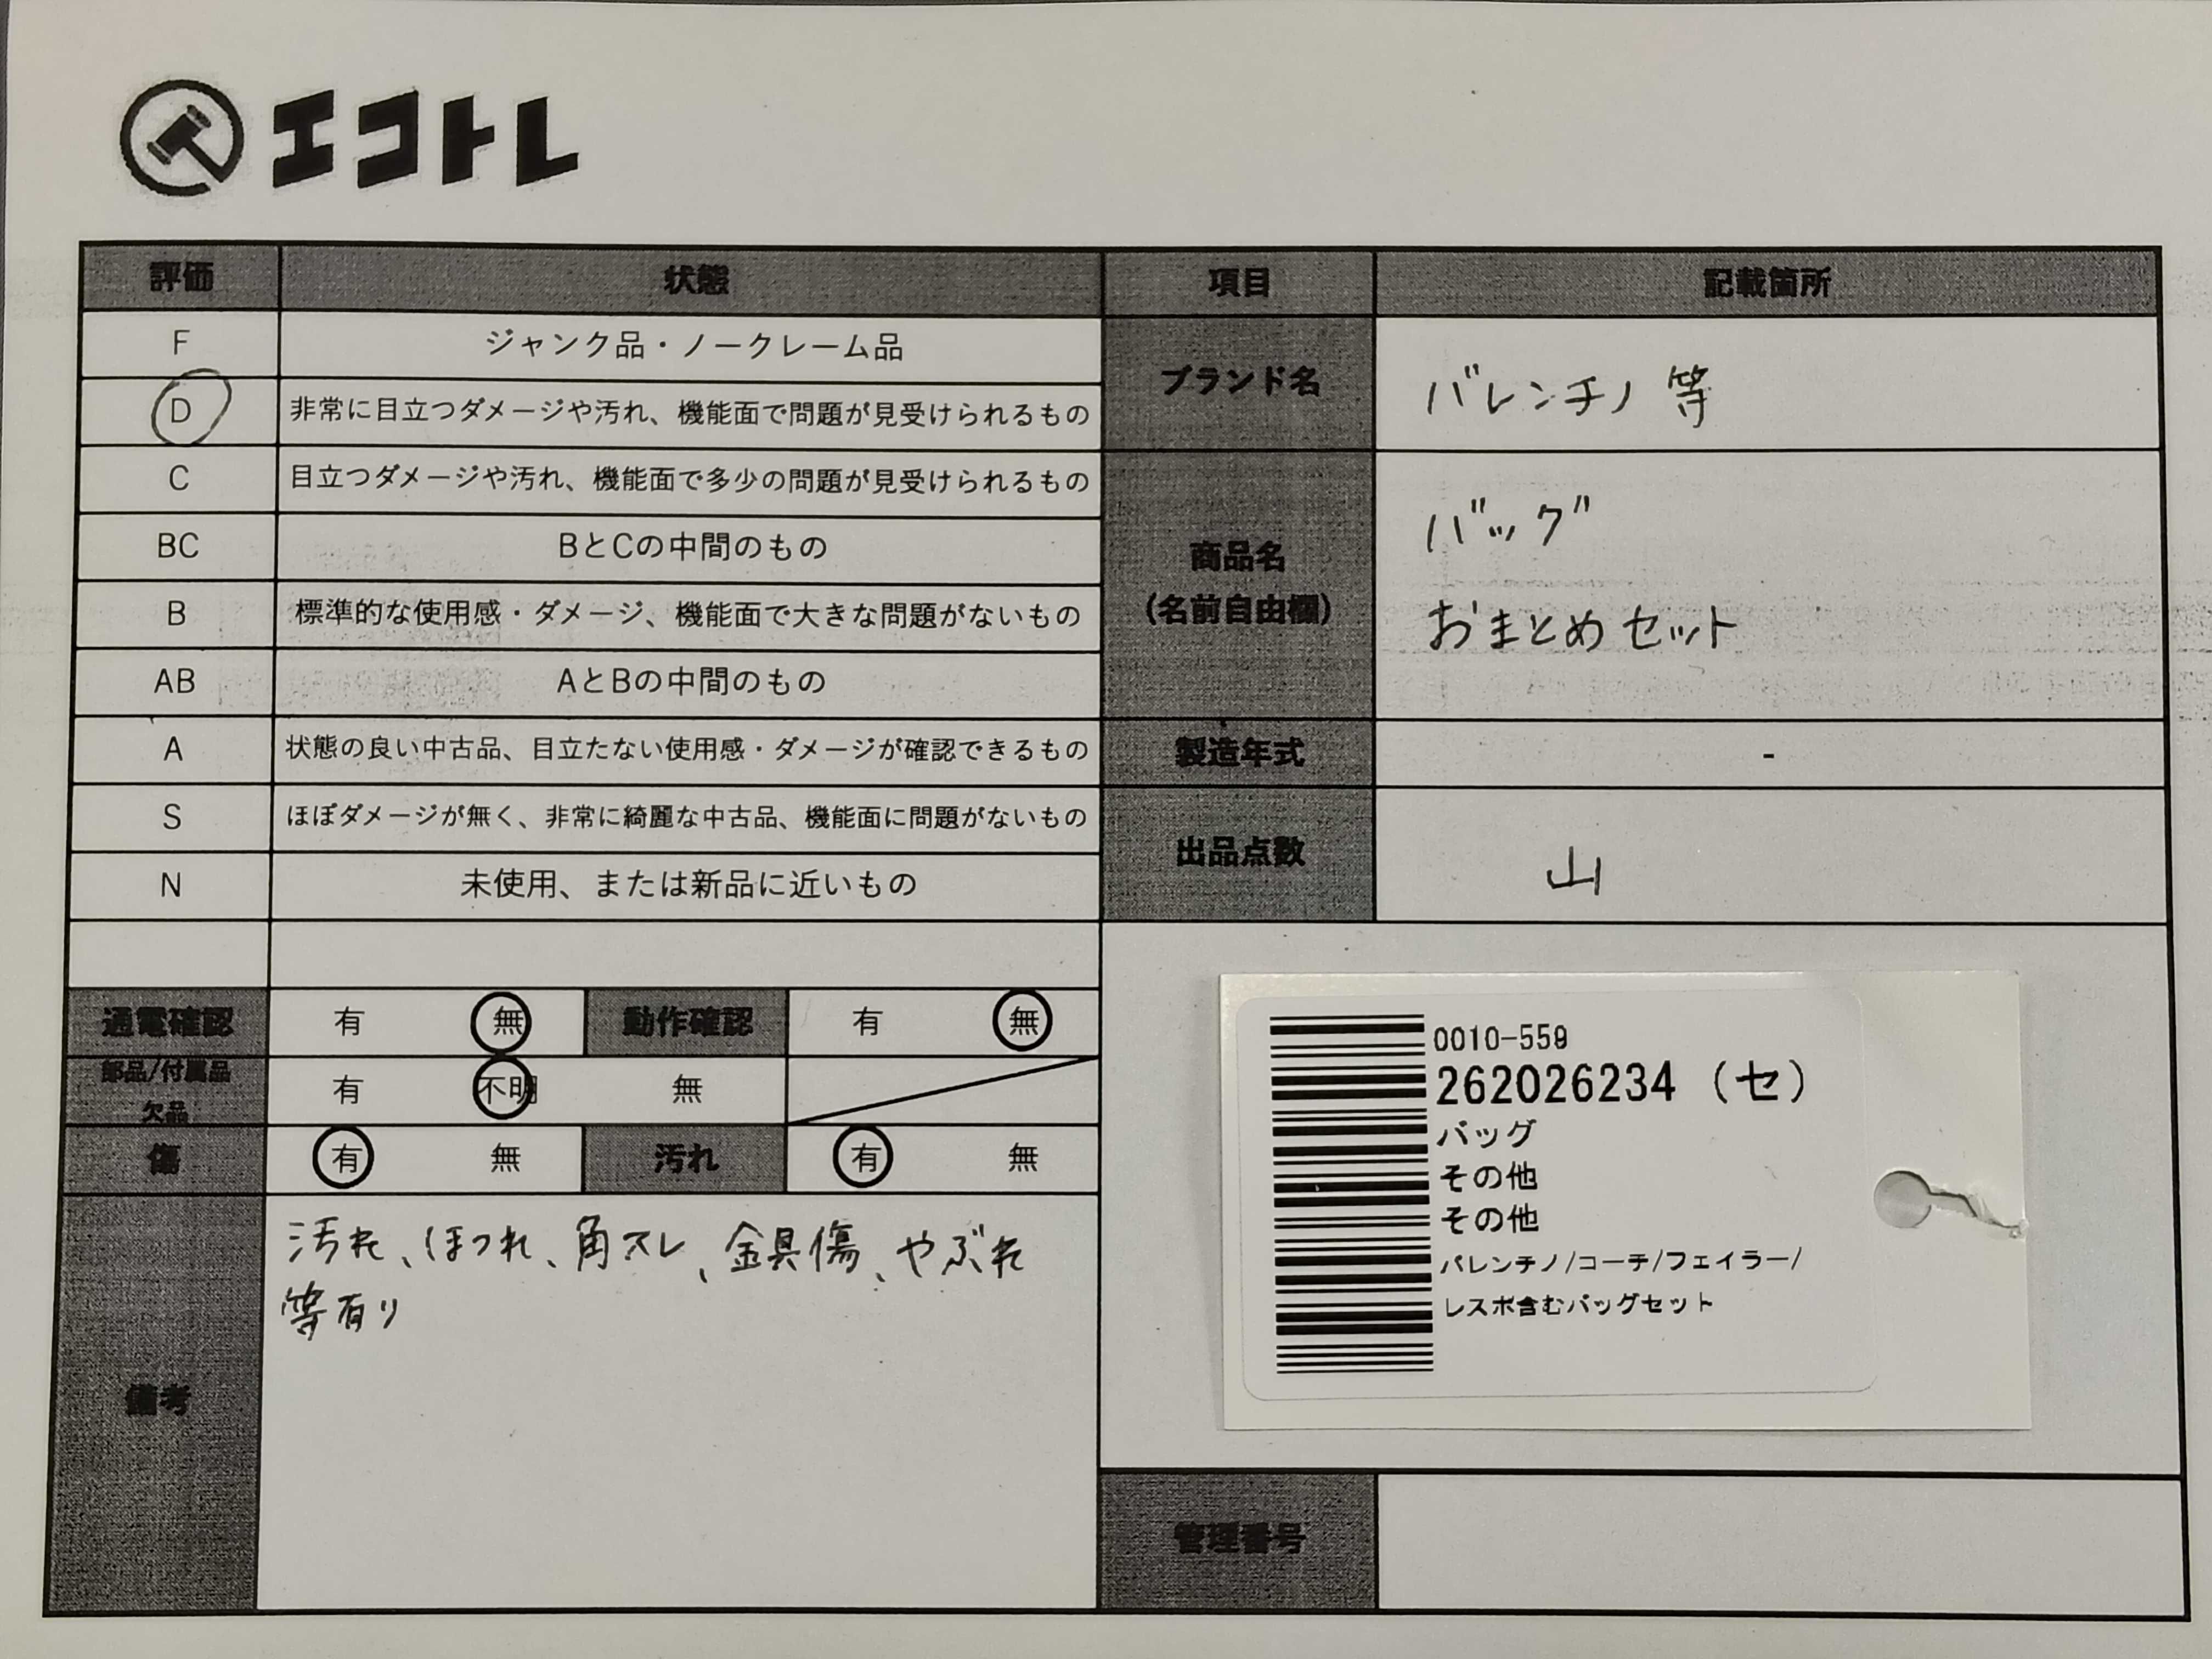 エコトレ
評価 状態 項目 記載箇所
F ジャンク品・ノークレーム品
D 非常に目立つダメージや汚れ、機能面で問題が見受けられるもの
C 目立つダメージや汚れ、機能面で多少の問題が見受けられるもの
BC BとCの中間のもの
B 標準的な使用感・ダメージ、機能面で大きな問題がないもの
AB AとBの中間のもの
A 状態の良い中古品、目立たない使用感・ダメージが確認できるもの
S ほぼダメージが無く、非常に綺麗な中古品、機能面に問題がないもの
N 未使用、または新品に近いもの
ブランド名 バレンチノ 等
商品名
(名前自由欄)
バッグ
おまとめセット
製造年式 -
出品点数 山
通電確認 有 無 動作確認 有 無
部品/付属品
欠品
有 不明 無
傷 有 無 汚れ 有 無
備考
汚れ、ほつれ、角スレ、金具傷、やぶれ
等有り
0010-559
262026234 (セ)
バッグ
その他
その他
バレンチノ/コーチ/フェイラー/
レスポ含むバッグセット
管理番号